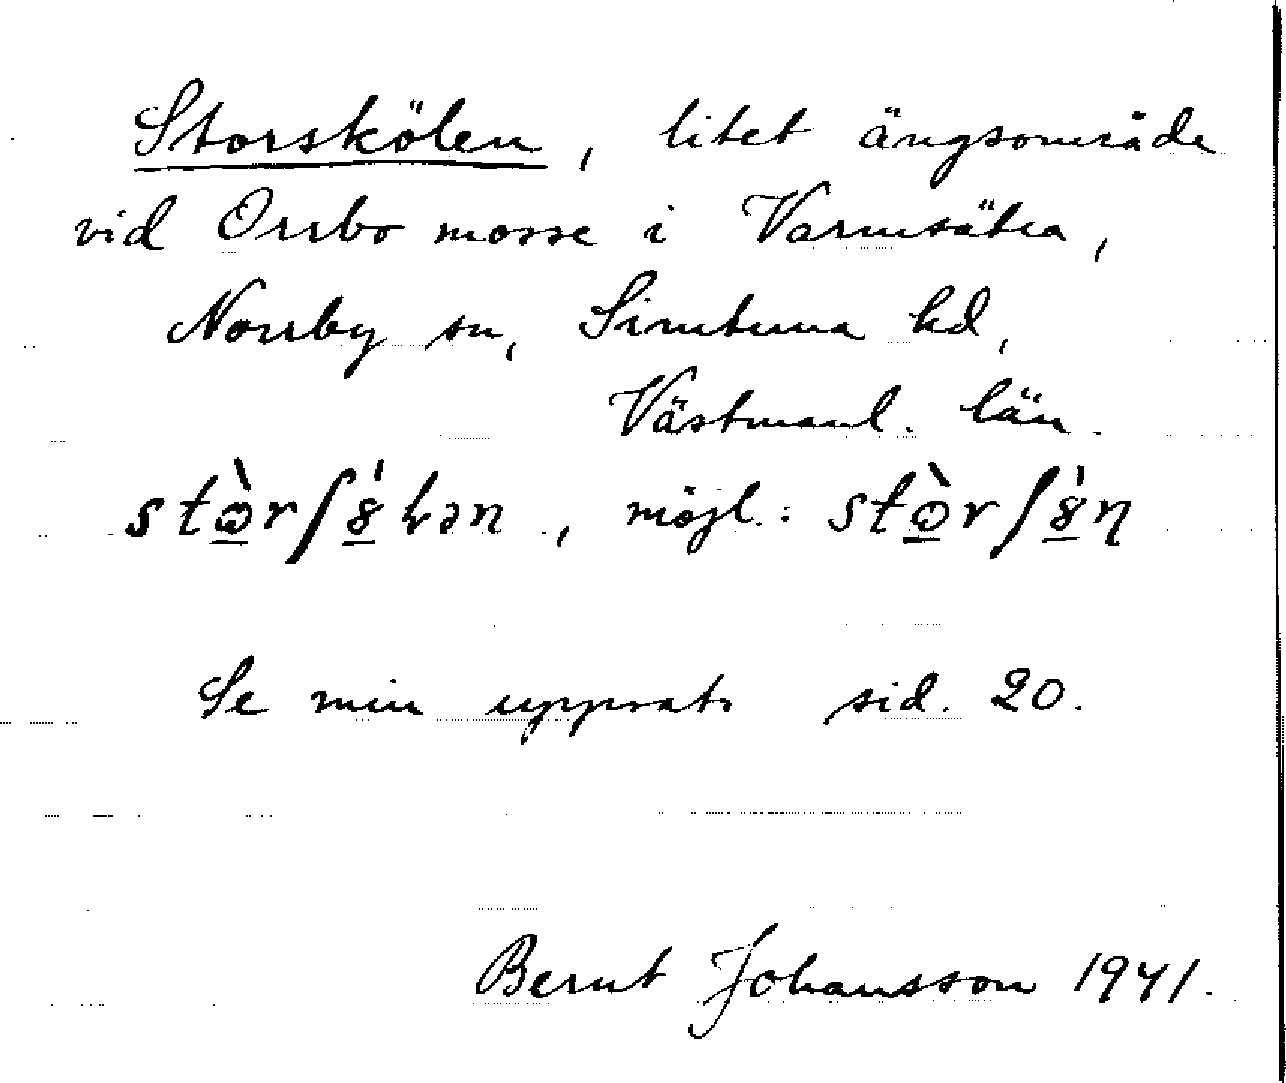 Storskölen, litet ängsområde
vid Orrbo mosse i Varmsätra,
Norrby sn, Simtuna hd,
Västmanl. län.
möjl.:
Se min uppsats sid. 20.
Bernt Johansson 1941.